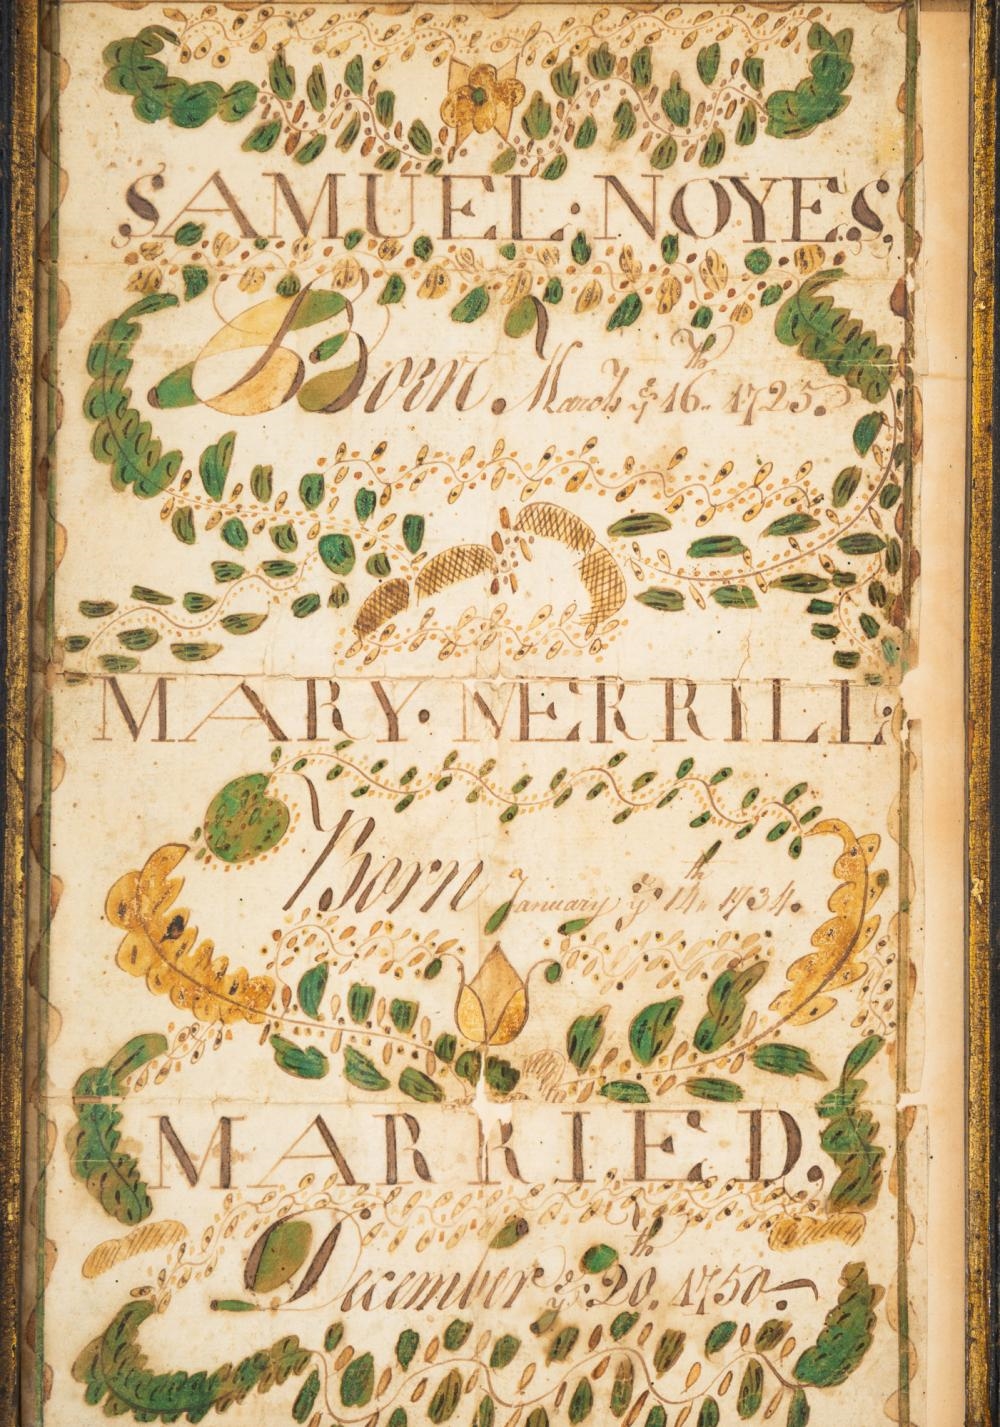 SAMUEL. NOYES.
Born. March yͤ 16.th 1725.
MARY. MERRILL.
Born January yͤ 14th 1734.
MARRIED.
December yͤ 20th, 1750.